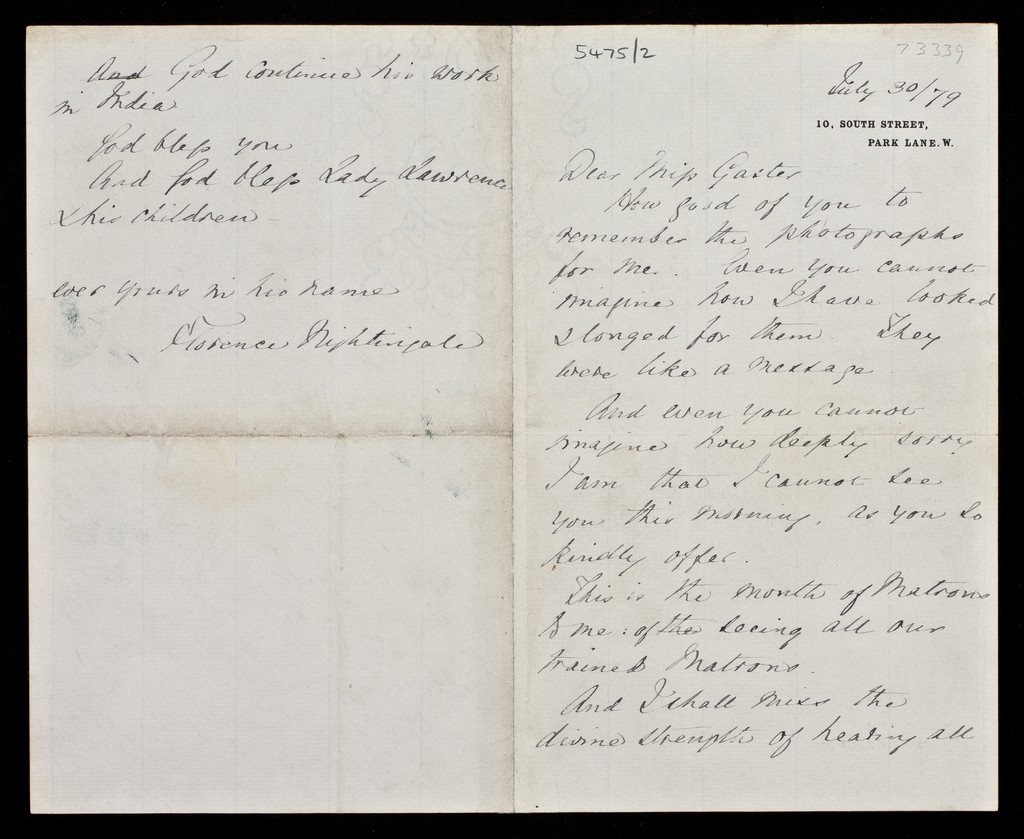 And God continue his work
in India
God bless you
And God bless Lady Lawrence
& his children -
ever yours in his name
Florence Nightingale
5475/2
73339
July 30/79
10, SOUTH STREET,
PARK LANE. W.
Dear Miss Gaster
How good of you to
remember the photographs
for me. Even you cannot
imagine how I have looked
& longed for them. They
were like a message.
And even you cannot
imagine how deeply sorry
I am that I cannot see
you this morning, as you so
kindly offer.
This is the month of Matrons
to me: of the seeing all our
trained Matrons.
And I shall miss the
divine strength of hearing all